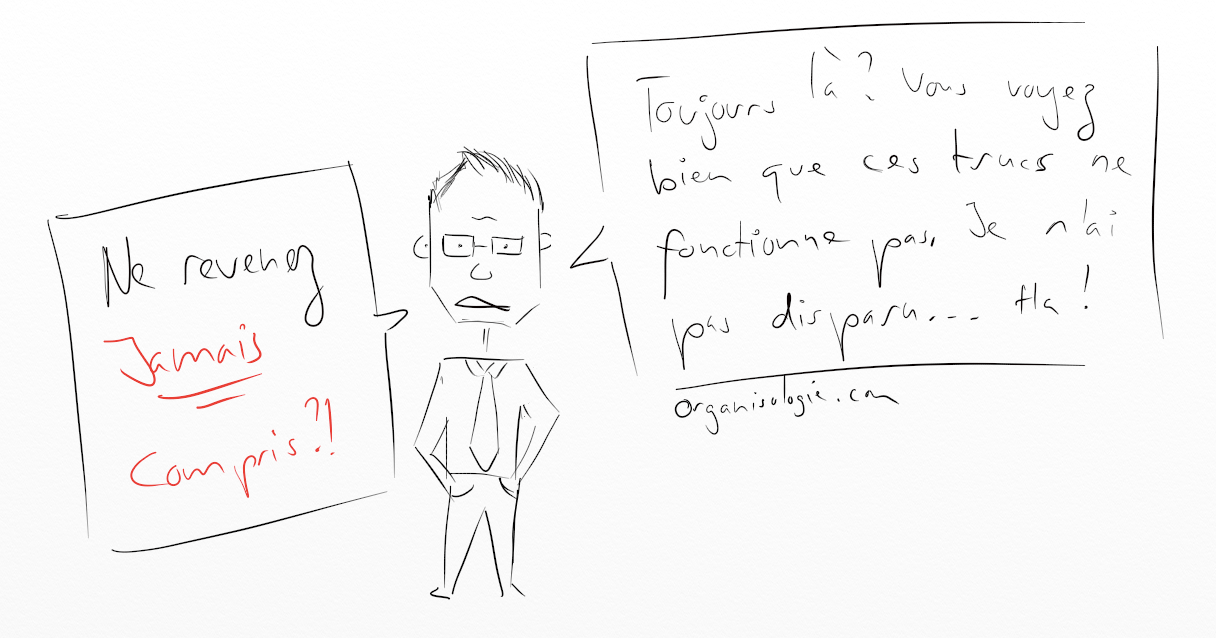 Ne revenez
Jamais
Compris?!
Toujours là? Vous voyez
bien que ces trucs ne
fonctionne pas. Je n'ai
pas disparu... Ha!
organisologie.com